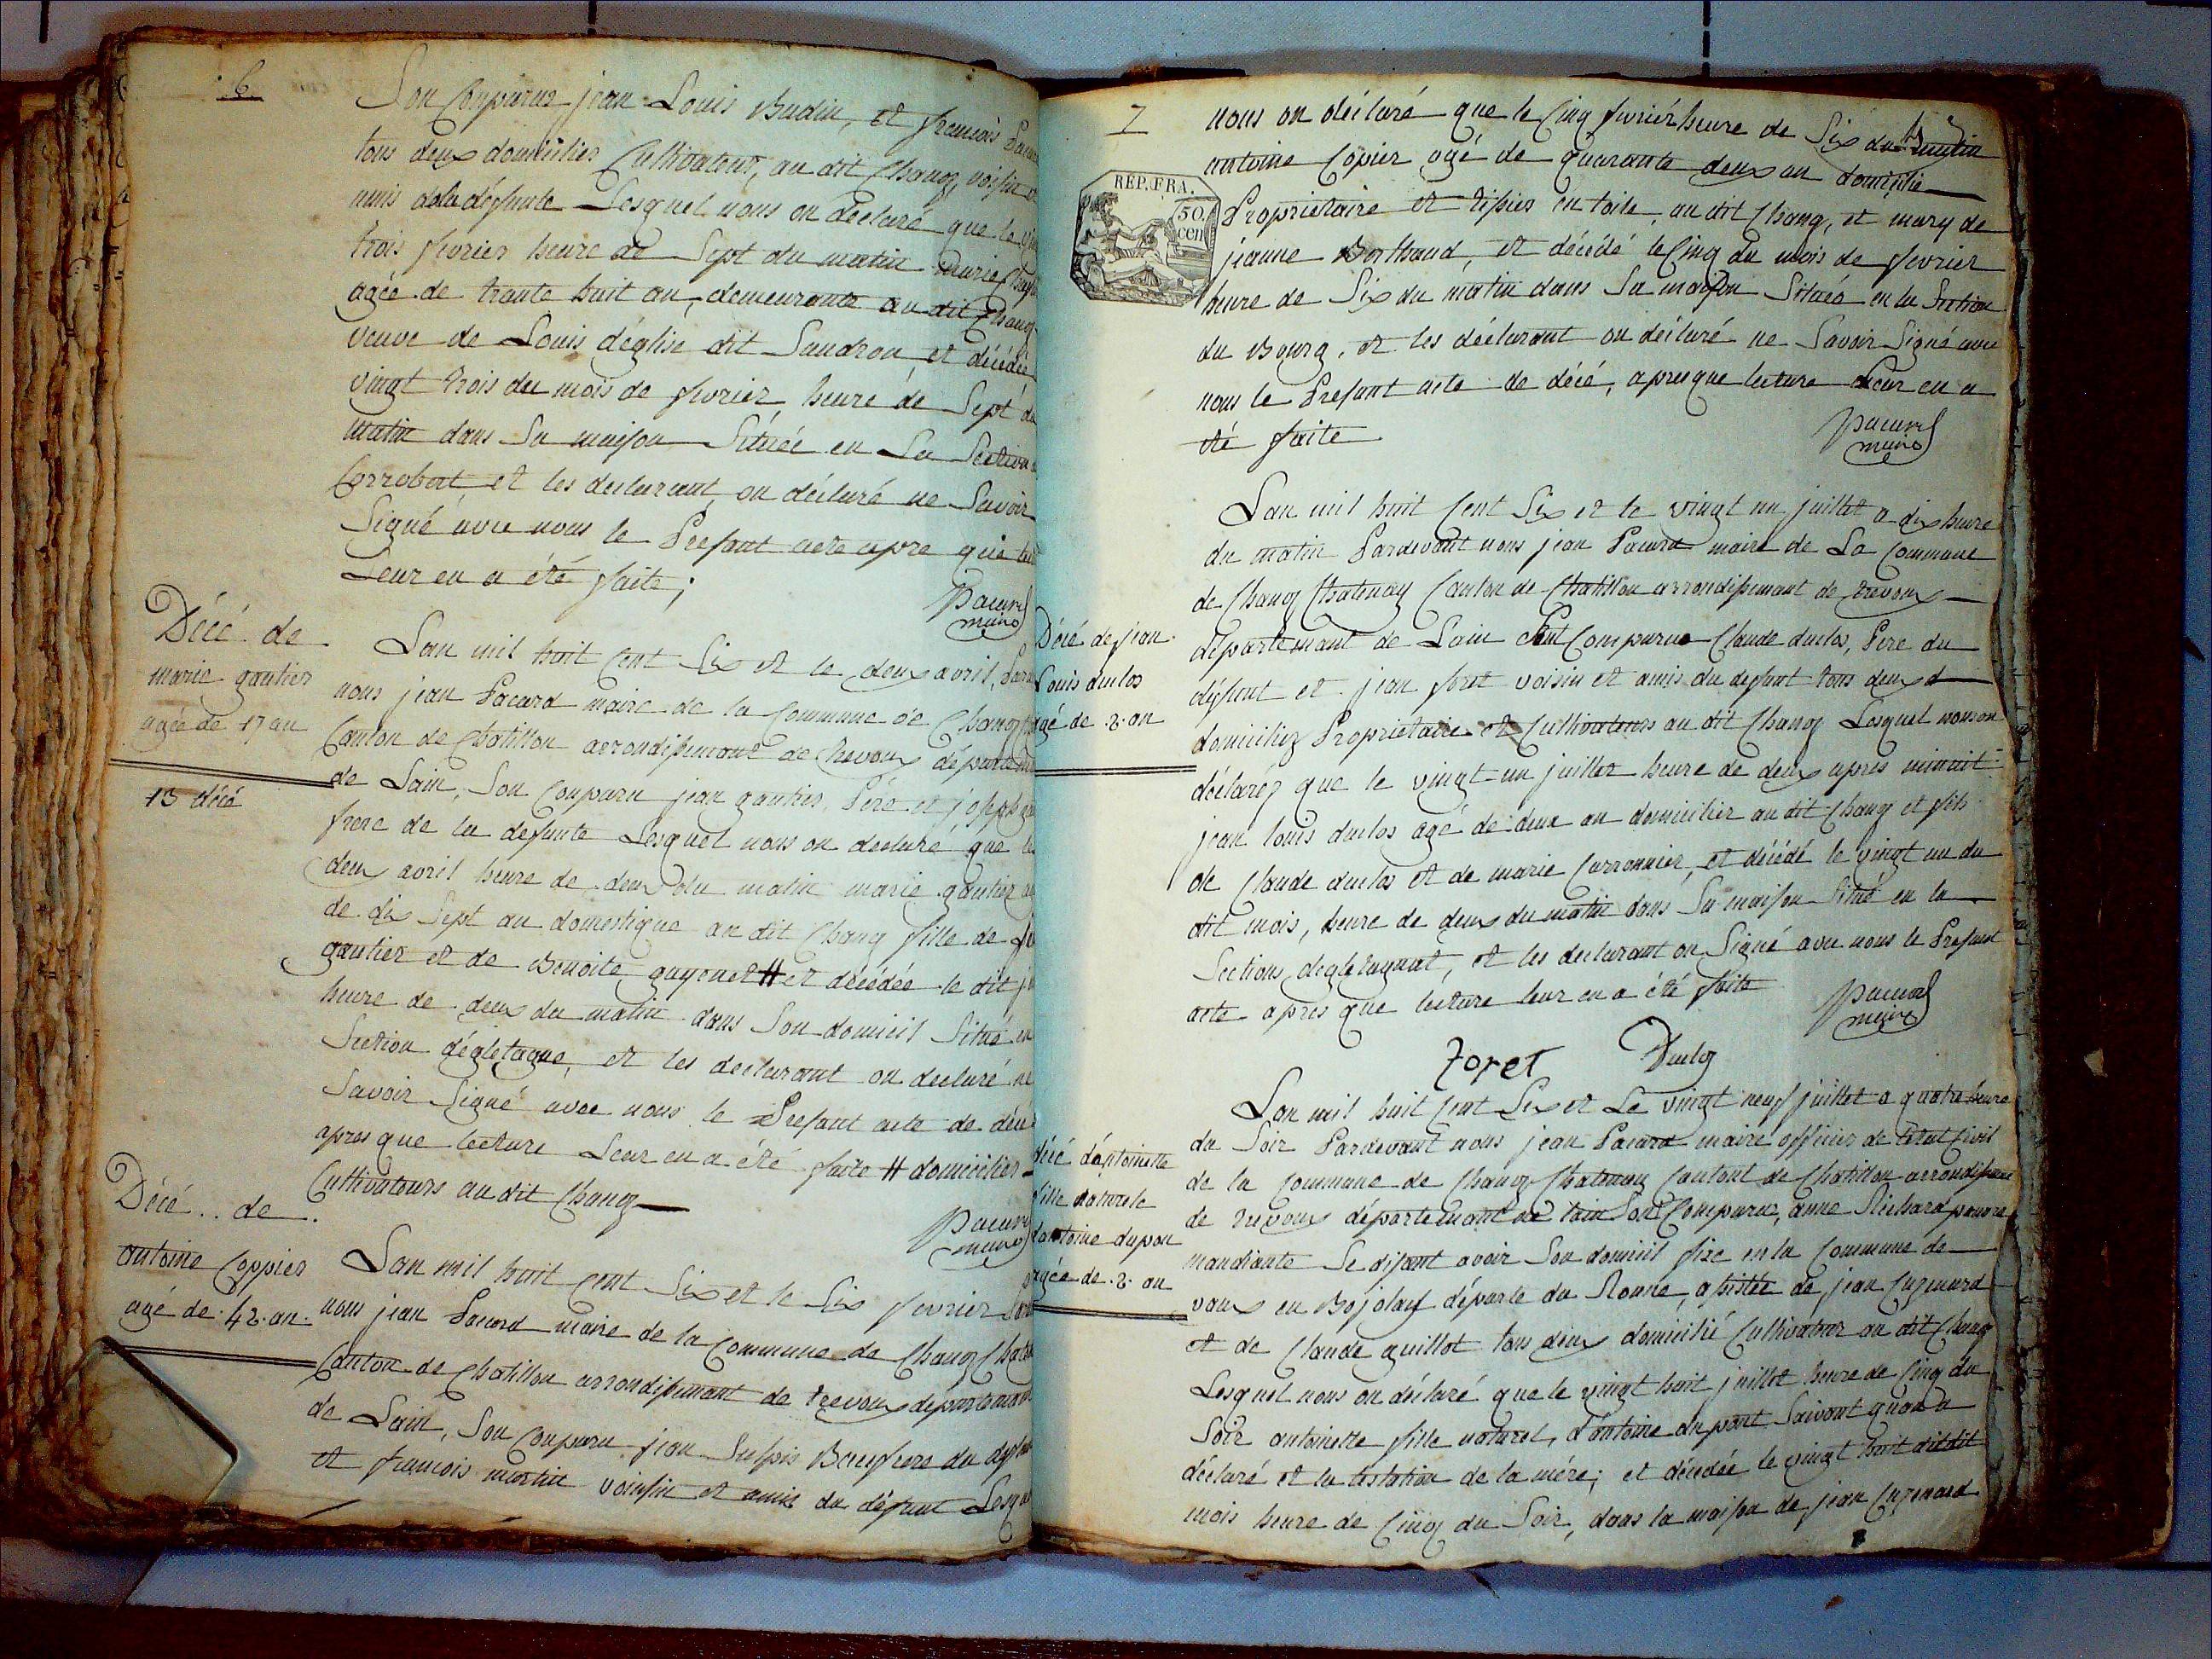 6
Son Comparus jean Louis Budin, et francois
tous deux domicilies Cultivateurs, au dit Chanoz, voisin et
amis dela défunte Lesquel nous on déclaré que le
trois fevrier heure de Sept du matin marie
agée de trante huit an, demeurante au dit Chanoz
veuve de Louis déglise dit Sandron, et décédée
vingt trois du mois de fevrier heure de Sept du
matin dans Sa maison Située en La Section
Corrobert, et les declarant, on déclaré ne Savoir
Signé avec nous le Présant acte apre que
Leur en a été faite;
Pacard
maire
Décé de
marie gautier
agée de 17 an
13 décé
Lan mil huit Cent Six et le deux avril,
nous jean Pacard maire de la Commune de Chanoz
Canton de Chatillon arrondissemant de trevoux département
de Lain, Son Comparu jean gautier, Père et joseph
frere de la defunte Lesquel nous on declaré que le
deux avril heure de deux du matin marie gautier
de dix Sept an domestique au dit Chanoz fille de
gautier et de Benoite guyenet # et décédée le dit
heure de deux du matin dans Son domicil Situé en
Section dégletagne, et les declarant on declaré ne
Savoir Signé avec nous le Présant acte de décé
apres que lecture Leur en a été faite # domicilier
Cultivateurs au dit Chanoz
Pacard
maire
Décé de
antoine Coppier
agé de 42 an
Lan mil huit Cent Six et le Six fevrier
nous jean Pacard maire de la Commune de Chanoz
Canton de Chatillon arrondissemant de trevoux département
de Lain, Son Comparu jean Sulpis Beaufrere du
et francois martin voisin et amis du défunt
7
REP. FRA.
50.
cen
nous on déclaré que le Cinq fevrier heure de Six du matin
antoine Copier agé de quarante deux an domicilié
Proprietaire et tissier en toile, au dit Chanoz, et mary de
jeanne Berthaud, et décédé le Cinq du mois de fevrier
heure de Six du matin dans Sa maison Située en la Section
du Bourg, et les déclarant on déclaré ne Savoir Signé avec
nous le Présant acte de décé, apresque lecture Leur en a
été faite
Pacard
maire
Décé de jean
Louis duclos
agé de 2 an
Lan mil huit Cent Six et le vingt un juillet a dix heure
du matin Pardevant nous jean Pacard maire de La Commune
de Chanoz Chatenay Canton de Chatillon arrondissemant de trevoux
départemant de Lain Sont Comparue Claude duclos, Pere du
défunt et jean foret voisin et amis du defunt tous deux d
domiciliez Proprietaire et Cultivateurs au dit Chanoz Lesquel nous on
déclarez que le vingt un juillet heure de deux apres minuit
jean Louis duclos agé de deux an domicilier au dit Chanoz et fils
de Claude duclos et de marie Carronnier, et décédé le vingt un du
dit mois, heure de deux du matin dans Sa maison Situé en la
Sections degletagnat, et les declarant on Signé avec nous le Présant
acte apres que lecture leur en a été faite
Pacard
maire
foret Duclos
décé dantoinette
fille naturele
dantoine dupon
agée de 2 an
Lan mil huit Cent Six et Le vingt neuf juillet a quatre heure
du Soir Pardevant nous jean Pacard maire officier de letat Civil
de la Commune de Chanoz Chatenay Cantont de Chatillon arrondissem
de trevoux départemant de lain Sont Comparue, anne Richard pauvre
mandiante Se disant avoir Son domicil fixe en la Commune de
vaux en Bojolais départe du Ronne, assistée de jean Cugenard
et de Claude guillot tous deux domicilié Cultivateur au dit Chanoz
Lesquel nous on déclaré que le vingt huit juillet heure de Cinq du
Soir antoinette fille naturel, d'antoine dupont Suivant quon a
déclaré et la testation de la mére; et décédée le vingt huit dudit
mois heure de Cinq du Soir, dans la maison de jean Cugenard